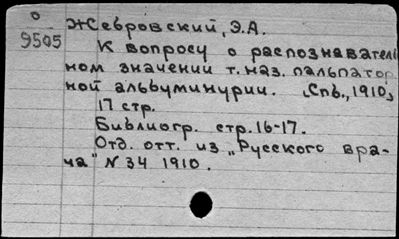 О
9505
Жебровский, Э.А.
К вопросу о распознаватель
ном значении т. наз. пальпатор
ной альбуминурии. Спб., 1910,
17 стр.
Библиогр. стр. 16-17.
Отд. отт. из „Русского вра-
ча" N 34 1910.